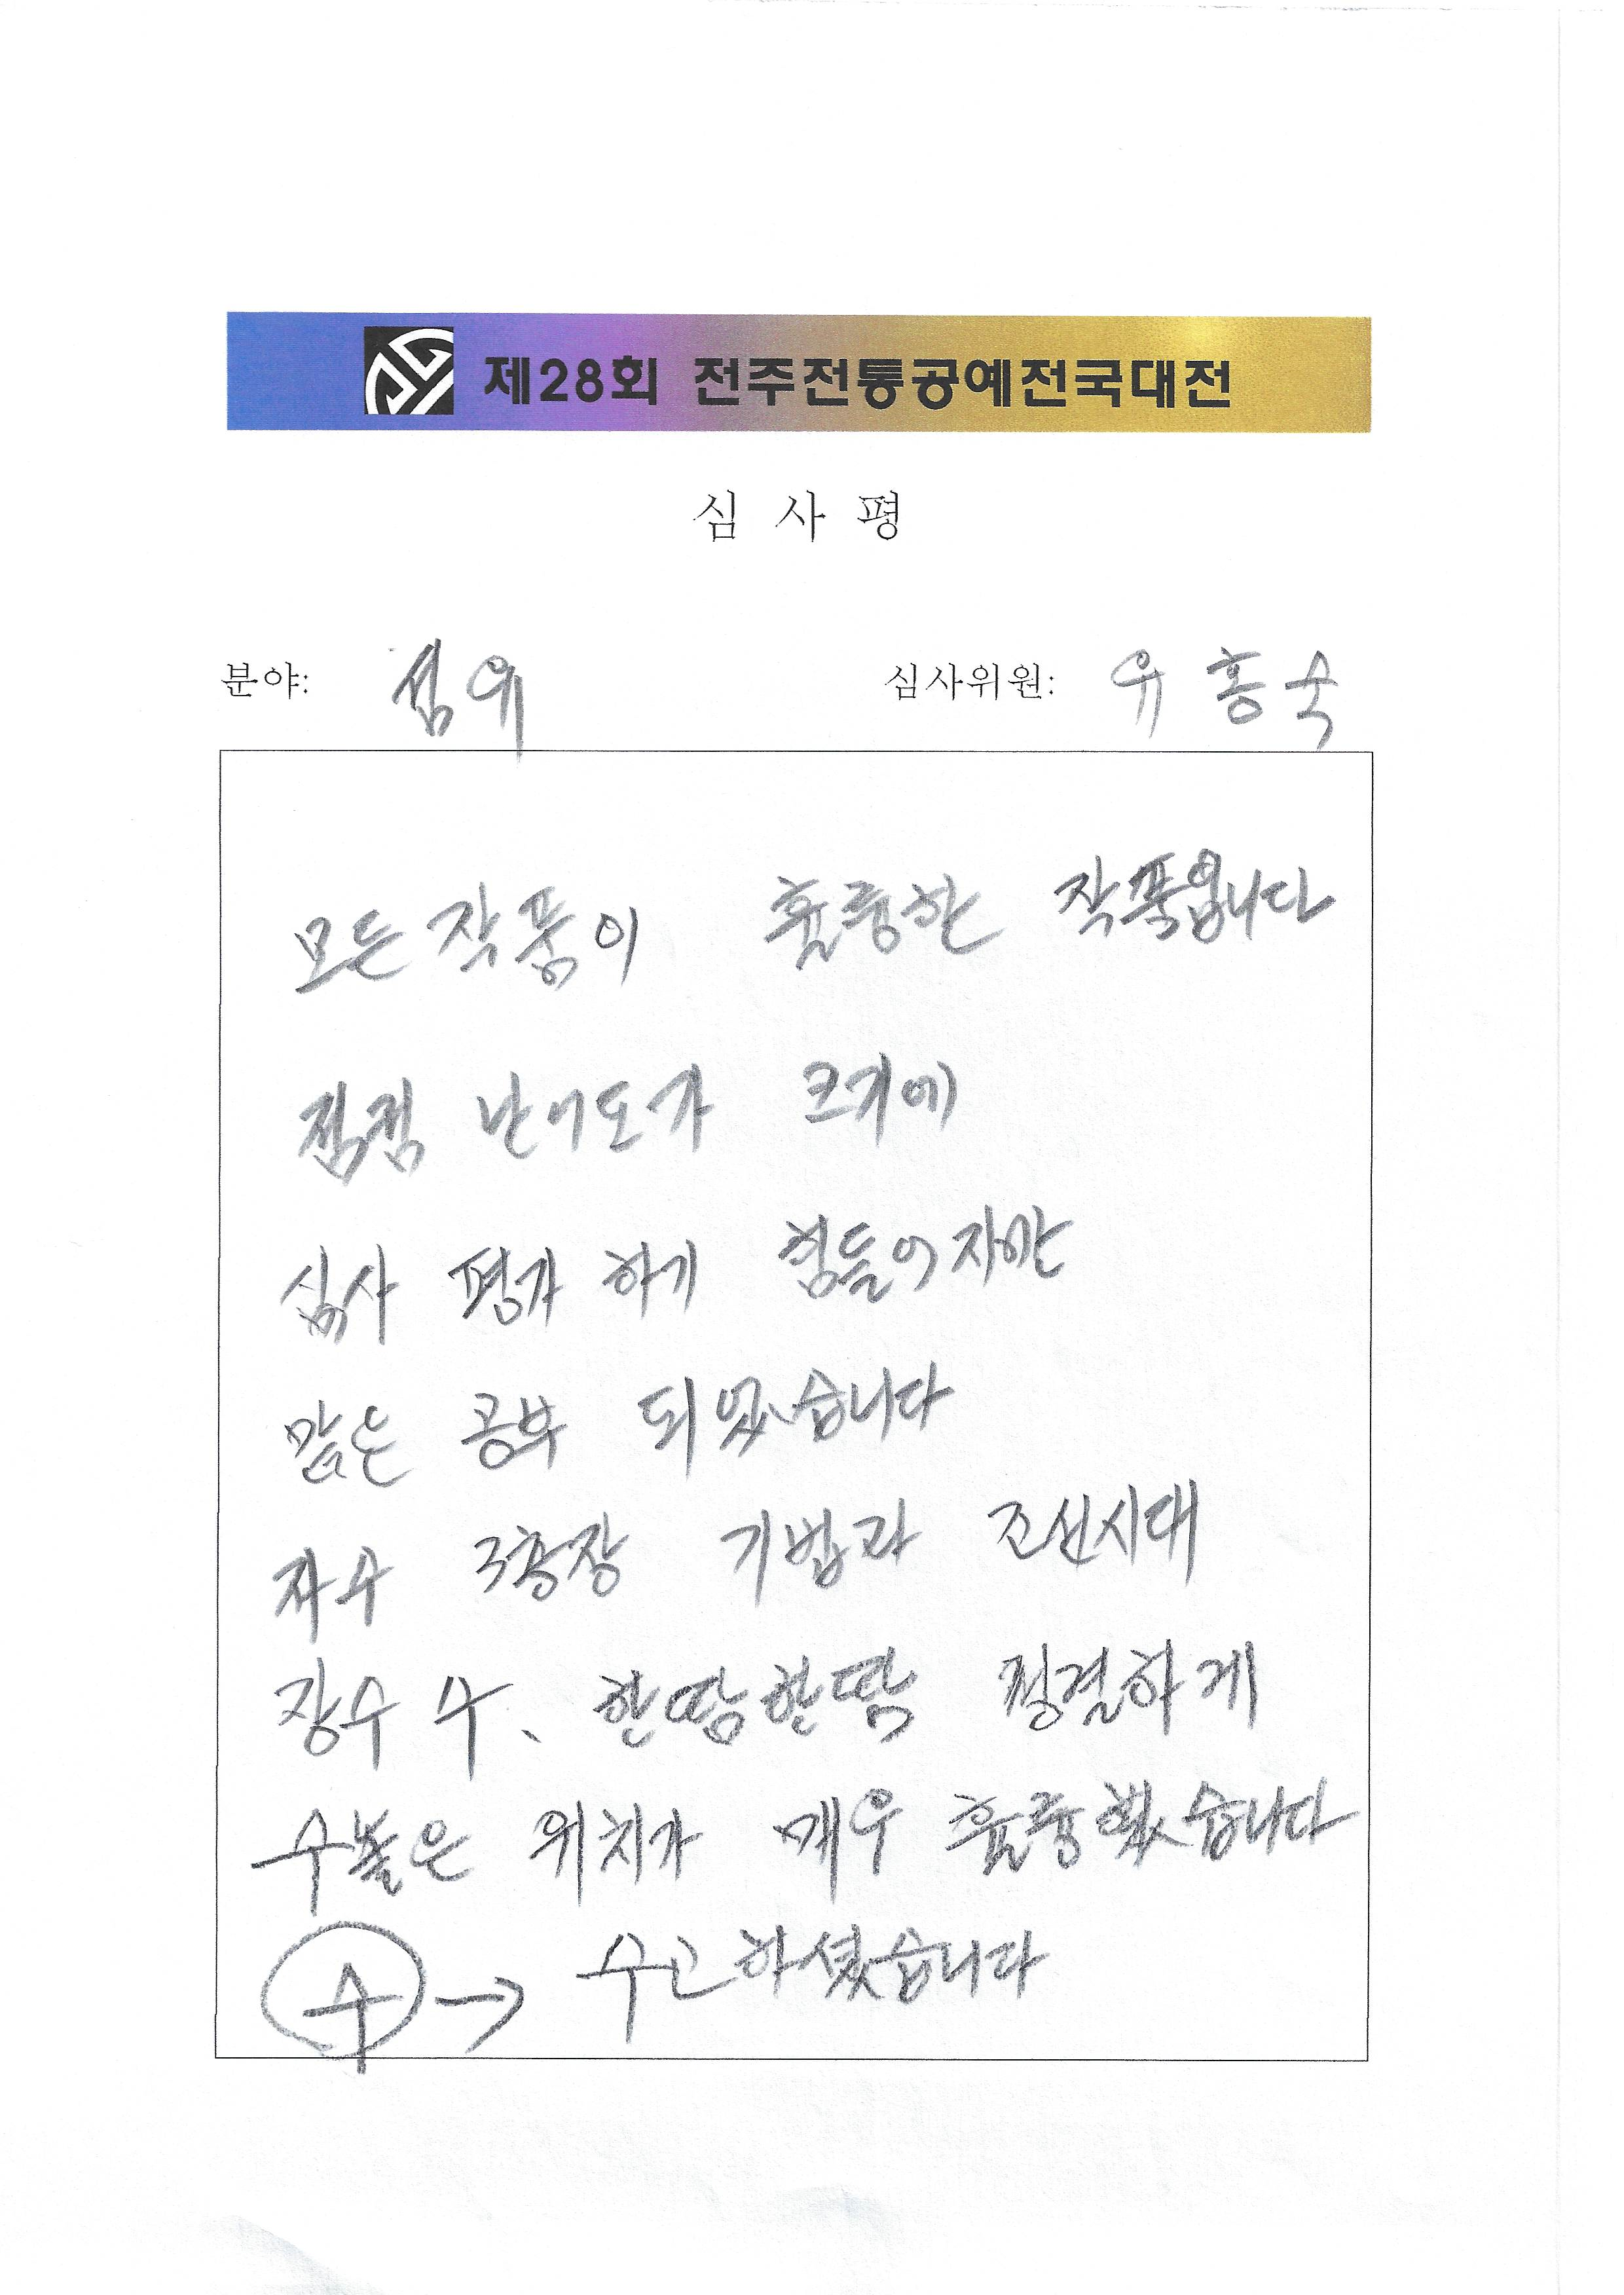 제28회 전주전통공예전국대전
심 사 평
분야: 섬유 심사위원: 유홍숙
모든 작품이 훌륭한 작품입니다
점점 난이도가 크기에
심사 평가 하기 힘들어지만
많은 공부 되었습니다
자수 3층장 기법과 조선시대
장수 수、 한땀한땀 정결하게
수놓은 위치가 매우 훌륭했습니다
수 → 수고하셨습니다